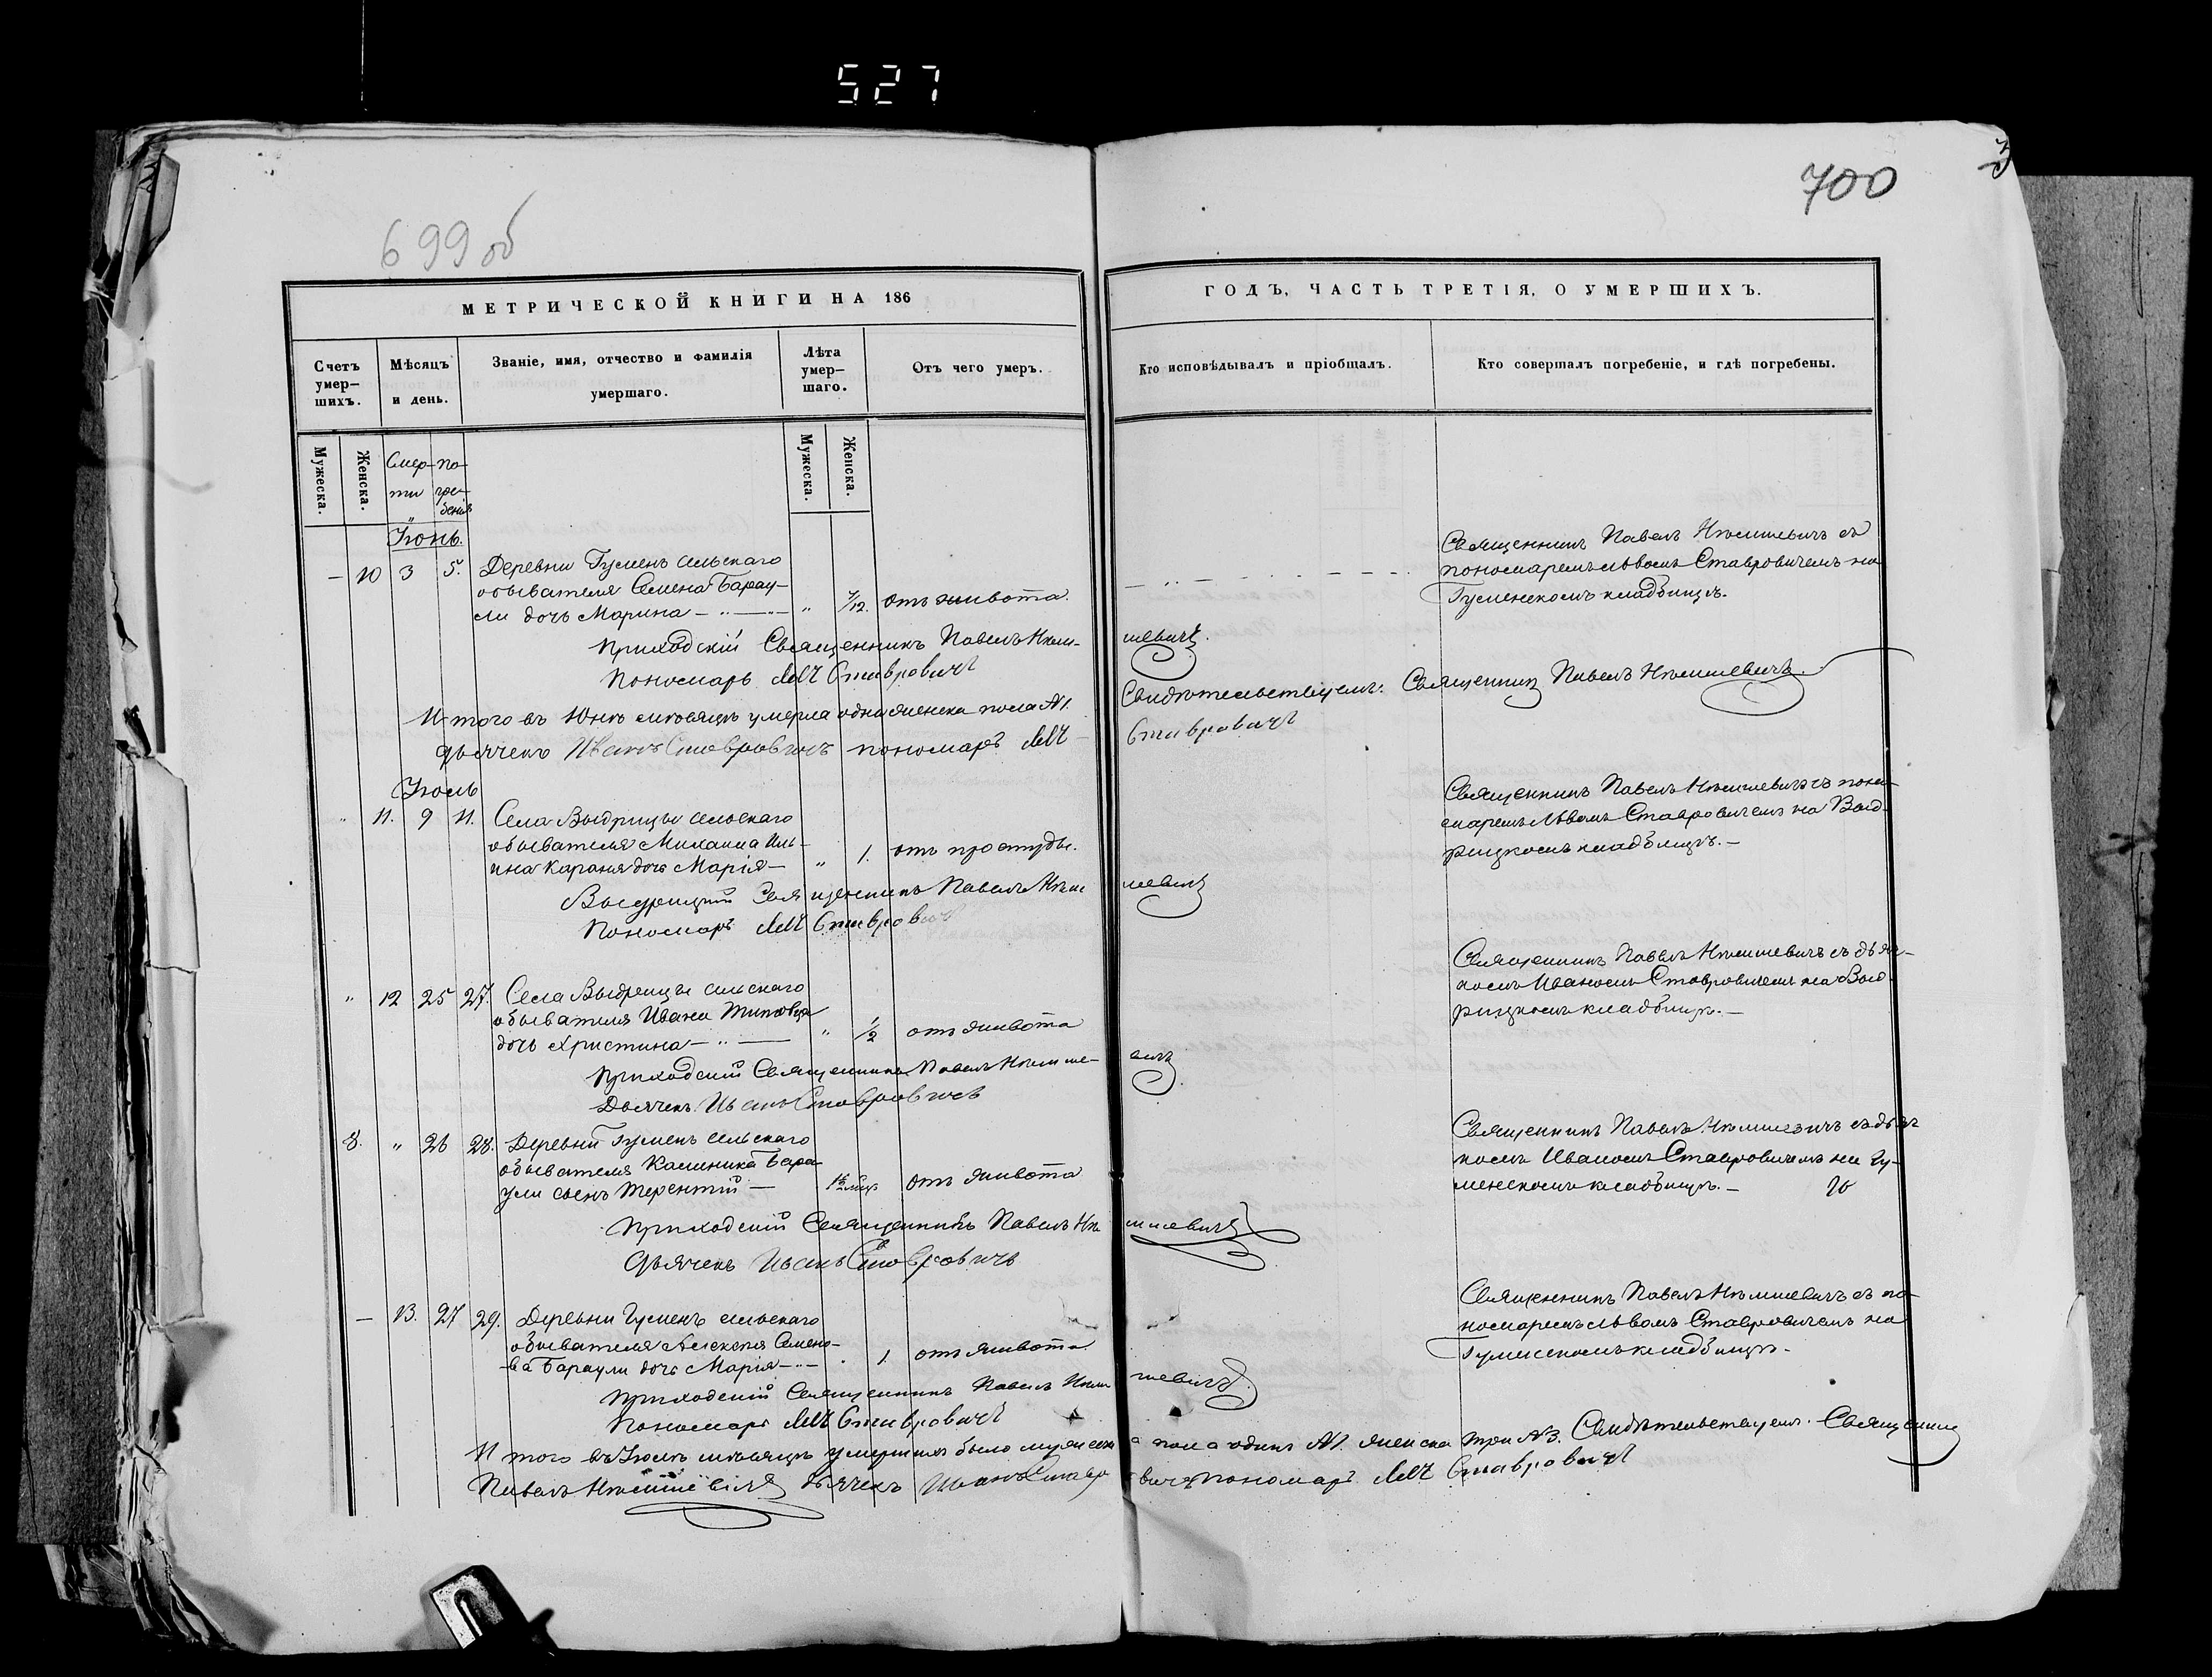 527
700
699 об
МЕТРИЧЕСКОЙ КНИГИ НА 186
ГОДЪ, ЧАСТЬ ТРЕТІЯ, О УМЕРШИХЪ.
Счетъ умер-шихъ.
Мѣсяцъ и день.
Званіе, имя, отчество и фамилія умершаго.
Лѣта умер-шаго.
Отъ чего умеръ.
Кто исповѣдывалъ и пріобщалъ.
Кто совершалъ погребеніе, и гдѣ погребены.
Мужеска.
Женска.
Смер-ти
по-гре-бенія
Мужеска.
Женска.
Іюнь.
— 10 3 5. Деревни Гуменъ сельскаго
обывателя Семена Барау-
ли дочь Марина — „ — „ 7/12. отъ живота.
Священникъ Павелъ съ
пономаремъ Львомъ Ставровичемъ на
Гуменскомъ кладбищѣ.
Приходскій Священникъ Павелъ
Пономарь Левъ Ставровичъ
И того въ Юнѣ мѣсяцѣ умерла одна женска пола №1. Свидѣтельствуемъ: Священникъ Павелъ
дьячекъ Иванъ Ставровичъ пономарь Левъ Ставровичъ
Іюль
„ 11. 9 11. Села Выдрицы сельскаго
обывателя Михаила Иль-
ина Караня дочь Марія — „ 1. отъ простуды.
Священникъ Павелъ съ поно-
маремъ Львомъ Ставровичемъ на Выд-
рицкомъ кладбищѣ. —
Выдрицкий Священникъ Павелъ
Пономарь Левъ Ставровичъ
„ 12 25 27. Села Выдрицы сельскаго
обывателя Ивана
дочь Христина — „ — „ 1/2 отъ живота
Священникъ Павелъ съ дьяч-
комъ Иваномъ Ставровичемъ на Выд-
рицкомъ кладбищѣ. —
Приходский Священникъ Павелъ
Дьячекъ Иванъ Ставровичъ
8. „ 26 28. Деревни Гуменъ сельскаго
обывателя Калиника Бара-
ули сынъ Терентій — отъ живота
Священникъ Павелъ съ дьяч-
комъ Иваномъ Ставровичемъ на Гу-
менскомъ кладбищѣ. —
Приходскій Священникъ Павелъ
Дьячекъ Иванъ Ставровичъ
— 13. 27 29. Деревни Гуменъ сельскаго
обывателя Алексѣя Семено-
ва Бараули дочь Марія — „ — 1. отъ живота
Священникъ Павелъ съ по-
номаремъ Львомъ Ставровичемъ на
Гуменскомъ кладбищѣ.
Приходскій Священникъ Павелъ
Пономарь Левъ Ставровичъ
И того въ Іюлѣ мѣсяцѣ умершихъ было мужеска пола одинъ №1. женска три №3. Свидѣтельствуемъ. Священникъ
Павелъ дьячекъ Иванъ Ставровичъ пономарь Левъ Ставровичъ